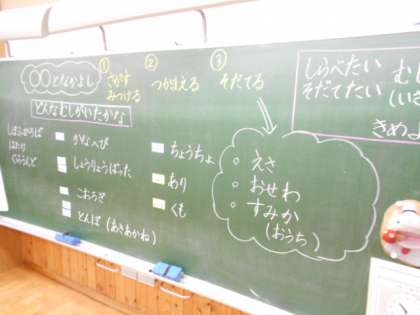 ○○となかよし
① さがす
みつける
② つかまえる
③ そだてる
どんなむしがいたかな
しばふひろば
はたけ
ぐらうんど
かなへび
しょうりょうばった
こおろぎ
とんぼ（あきあかね）
ちょうちょ
あり
くも
○ えさ
○ おせわ
○ すみか
（おうち）
しらべたい
そだてたい
むし
きめよ